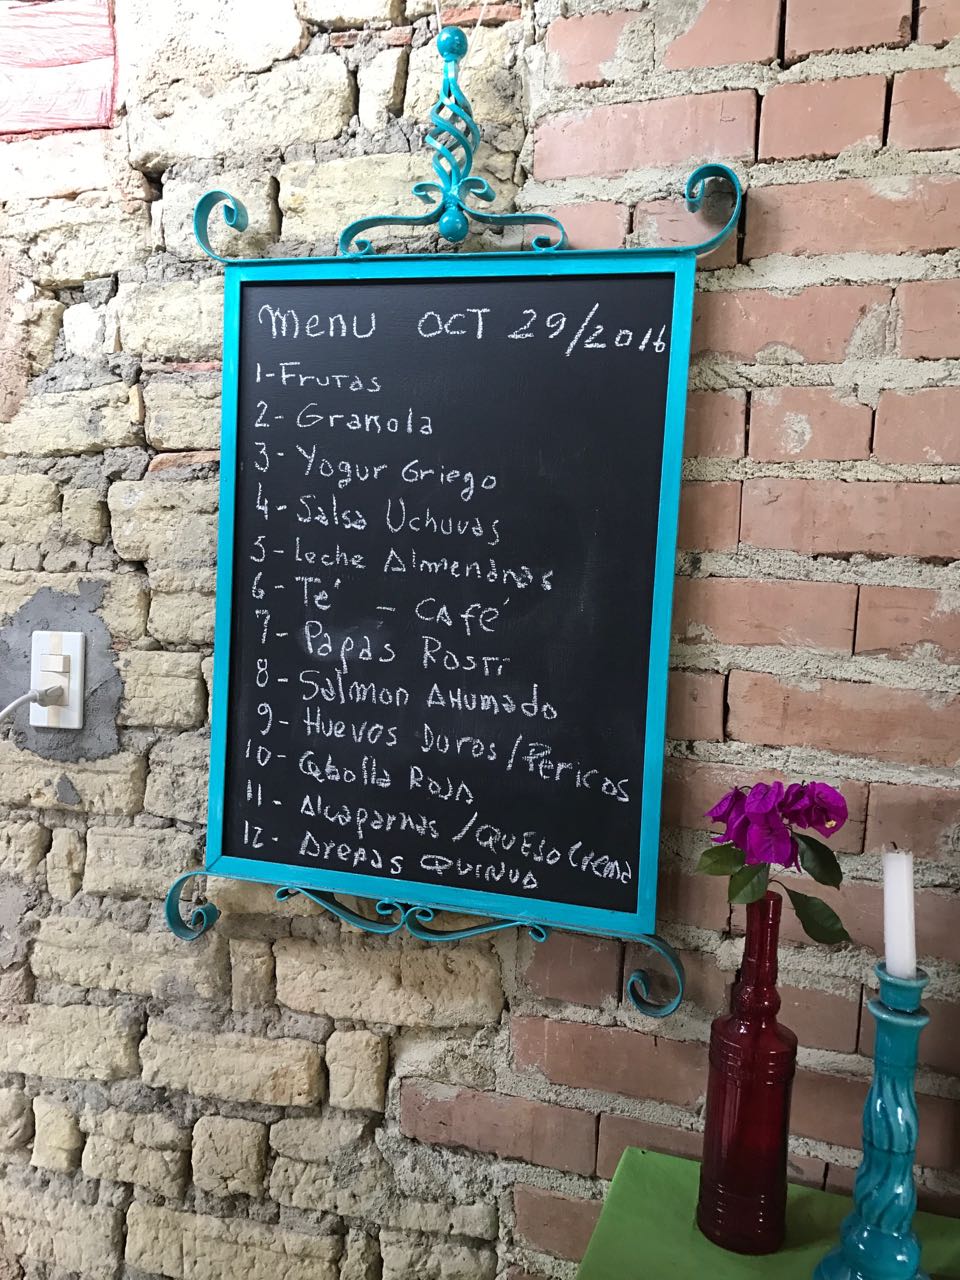 Menu OCT 29/2016
1-Frutas
2- Granola
3- Yogur Griego
4- Salsa Uchuvas
5- Leche Almendras
6- Té - Café
7- Papas Rosti
8- Salmon Ahumado
9- Huevos Duros/Pericos
10- Cebolla Roja
11- Alcaparras/Queso Crema
12- Arepas Quinua